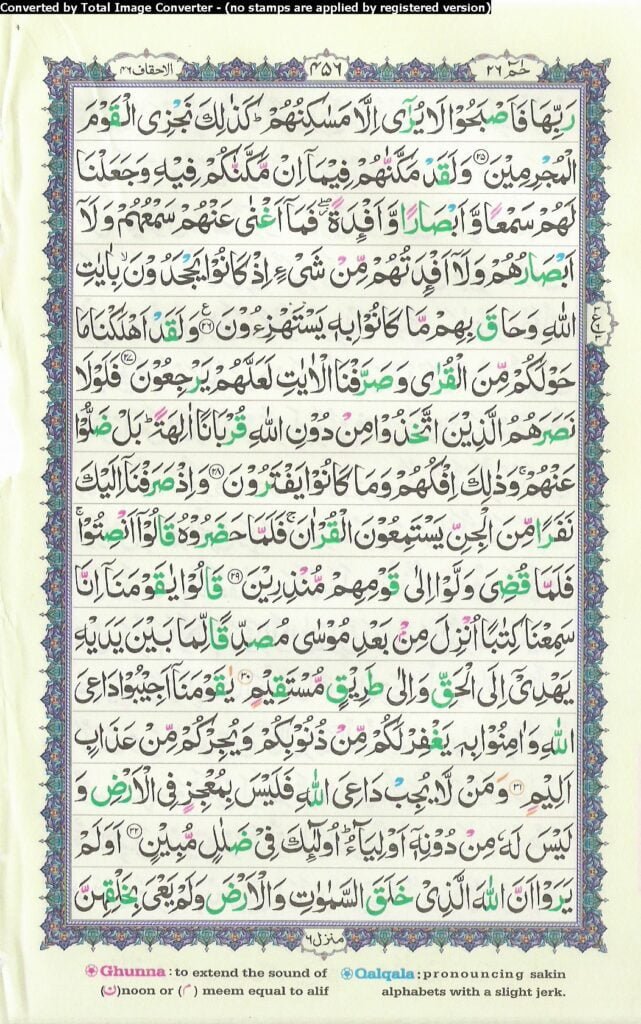 Converted by Total Image Converter - (no stamps are applied by registered version)
حٰمٓ ٢٦
٤٥٦
الاحقاف ٤٦
رَبِّهَا فَاَصْبَحُوْا لَا يُرٰٓى اِلَّا مَسٰكِنُهُمْ ؕ كَذٰلِكَ نَجْزِى الْقَوْمَ
الْمُجْرِمِيْنَ ﴿۲۵﴾ وَلَقَدْ مَكَّنّٰهُمْ فِيْمَاۤ اِنْ مَّكَّنّٰكُمْ فِيْهِ وَجَعَلْنَا
لَهُمْ سَمْعًا وَّاَبْصَارًا وَّاَفْـِٕدَةً ۖ فَمَاۤ اَغْنٰى عَنْهُمْ سَمْعُهُمْ وَلَاۤ
اَبْصَارُهُمْ وَلَاۤ اَفْـِٕدَتُهُمْ مِّنْ شَىْءٍ اِذْ كَانُوْا يَجْحَدُوْنَ ۙ بِاٰيٰتِ
اللّٰهِ وَحَاقَ بِهِمْ مَّا كَانُوْا بِهٖ يَسْتَهْزِءُوْنَ ﴿۲۶﴾ وَلَقَدْ اَهْلَكْنَا مَا
حَوْلَكُمْ مِّنَ الْقُرٰى وَصَرَّفْنَا الْاٰيٰتِ لَعَلَّهُمْ يَرْجِعُوْنَ ﴿۲۷﴾ فَلَوْلَا
نَصَرَهُمُ الَّذِيْنَ اتَّخَذُوْا مِنْ دُوْنِ اللّٰهِ قُرْبَانًا اٰلِهَةً ؕ بَلْ ضَلُّوْا
عَنْهُمْ ۚ وَذٰلِكَ اِفْكُهُمْ وَمَا كَانُوْا يَفْتَرُوْنَ ﴿۲۸﴾ وَاِذْ صَرَفْنَاۤ اِلَيْكَ
نَفَرًا مِّنَ الْجِنِّ يَسْتَمِعُوْنَ الْقُرْاٰنَ ۚ فَلَمَّا حَضَرُوْهُ قَالُوْۤا اَنْصِتُوْا ۚ
فَلَمَّا قُضِىَ وَلَّوْا اِلٰى قَوْمِهِمْ مُّنْذِرِيْنَ ﴿۲۹﴾ قَالُوْا يٰقَوْمَنَاۤ اِنَّا
سَمِعْنَا كِتٰبًا اُنْزِلَ مِنْۢ بَعْدِ مُوْسٰى مُصَدِّقًا لِّمَا بَيْنَ يَدَيْهِ
يَهْدِىْۤ اِلَى الْحَقِّ وَاِلٰى طَرِيْقٍ مُّسْتَقِيْمٍ ﴿۳۰﴾ يٰقَوْمَنَاۤ اَجِيْبُوْا دَاعِىَ
اللّٰهِ وَاٰمِنُوْا بِهٖ يَغْفِرْ لَكُمْ مِّنْ ذُنُوْبِكُمْ وَيُجِرْكُمْ مِّنْ عَذَابٍ
اَلِيْمٍ ﴿۳۱﴾ وَمَنْ لَّا يُجِبْ دَاعِىَ اللّٰهِ فَلَيْسَ بِمُعْجِزٍ فِى الْاَرْضِ وَ
لَيْسَ لَهٗ مِنْ دُوْنِهٖۤ اَوْلِيَآءُ ؕ اُولٰٓئِكَ فِىْ ضَلٰلٍ مُّبِيْنٍ ﴿۳۲﴾ اَوَلَمْ
يَرَوْا اَنَّ اللّٰهَ الَّذِىْ خَلَقَ السَّمٰوٰتِ وَالْاَرْضَ وَلَمْ يَعْىَ بِخَلْقِهِنَّ
منزل ٦
Ghunna : to extend the sound of
(ن) noon or (م) meem equal to alif
Qalqala : pronouncing sakin
alphabets with a slight jerk.